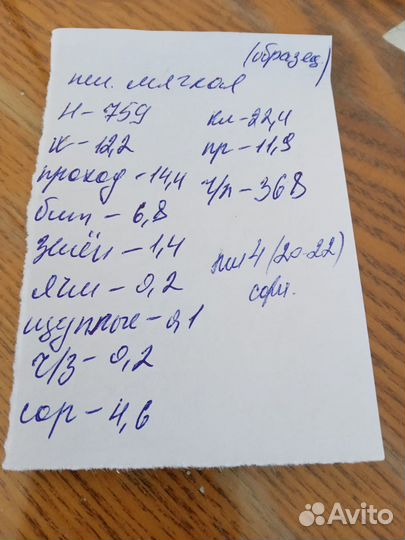 (образец)
пш. мягкая
Н - 759
кл - 22,4
w - 12,2
пр - 11,9
проход - 14,4
ч/п - 368
бит - 6,8
зелён - 1,4
пш 4 (20-22)
ячм - 0,2
сорт.
щуплые - 0,1
ч/з - 0,2
сор - 4,6
Avito